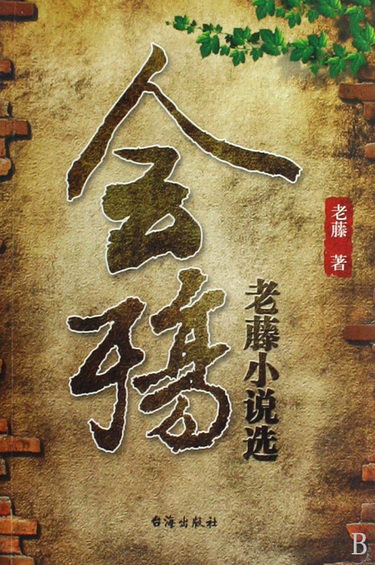 会殇
老藤小说选
老藤 著
台海出版社
B